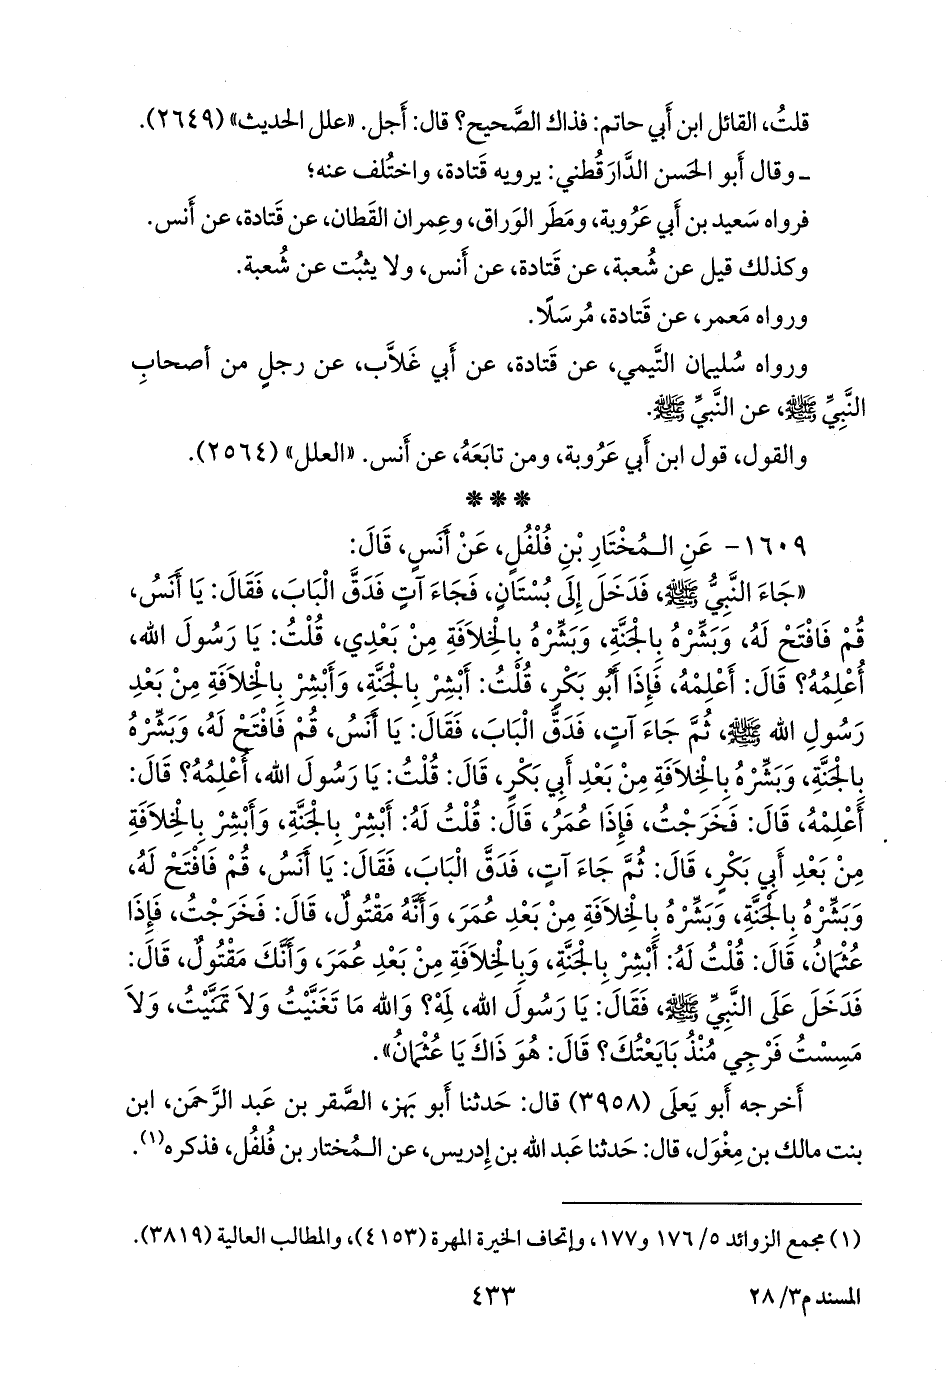 قلتُ، القائل ابن أَبي حاتم: فذاك الصَّحيح؟ قال: أَجل. «علل الحديث» (٢٦٤٩).
ـ وقال أَبو الحَسن الدَّارَقُطني: يرويه قَتادة، واختُلف عنه؛
فرواه سَعيد بن أَبي عَرُوبة، ومَطَر الوَراق، وعِمران القَطان، عن قَتادة، عن أَنس.
وكذلك قيل عن شُعبة، عن قَتادة، عن أَنس، ولا يثبُت عن شُعبة.
ورواه مَعمر، عن قَتادة، مُرسَلًا.
ورواه سُليمان التَّيمي، عن قَتادة، عن أَبي غَلاَّب، عن رجلٍ من أصحابِ
النَّبيِّ ﷺ، عن النَّبيِّ ﷺ.
والقول، قول ابن أَبي عَرُوبة، ومن تابَعَهُ، عن أَنس. «العلل» (٢٥٦٤).
* * *
١٦٠٩- عَنِ الـمُخْتَارِ بْنِ فُلْفُلٍ، عَنْ أَنَسٍ، قَالَ:
«جَاءَ النَّبِيُّ ﷺ، فَدَخَلَ إِلَى بُسْتَانٍ، فَجَاءَ آتٍ فَدَقَّ الْبَابَ، فَقَالَ: يَا أَنَسُ،
قُمْ فَافْتَحْ لَهُ، وَبَشِّرْهُ بِالْجَنَّةِ، وَبَشِّرْهُ بِالْخِلاَفَةِ مِنْ بَعْدِي، قُلْتُ: يَا رَسُولَ الله،
أُعْلِمُهُ؟ قَالَ: أَعْلِمْهُ، فَإِذَا أَبُو بَكْرٍ، قُلْتُ: أَبْشِرْ بِالْجَنَّةِ، وَأَبْشِرْ بِالْخِلاَفَةِ مِنْ بَعْدِ
رَسُولِ الله ﷺ، ثُمَّ جَاءَ آتٍ، فَدَقَّ الْبَابَ، فَقَالَ: يَا أَنَسُ، قُمْ فَافْتَحْ لَهُ، وَبَشِّرْهُ
بِالْجَنَّةِ، وَبَشِّرْهُ بِالْخِلاَفَةِ مِنْ بَعْدِ أَبِي بَكْرٍ، قَالَ: قُلْتُ: يَا رَسُولَ الله، أُعْلِمُهُ؟ قَالَ:
أَعْلِمْهُ، قَالَ: فَخَرَجْتُ، فَإِذَا عُمَرُ، قَالَ: قُلْتُ لَهُ: أَبْشِرْ بِالْجَنَّةِ، وَأَبْشِرْ بِالْخِلاَفَةِ
مِنْ بَعْدِ أَبِي بَكْرٍ، قَالَ: ثُمَّ جَاءَ آتٍ، فَدَقَّ الْبَابَ، فَقَالَ: يَا أَنَسُ، قُمْ فَافْتَحْ لَهُ،
وَبَشِّرْهُ بِالْجَنَّةِ، وَبَشِّرْهُ بِالْخِلاَفَةِ مِنْ بَعْدِ عُمَرَ، وَأَنَّهُ مَقْتُولٌ، قَالَ: فَخَرَجْتُ، فَإِذَا
عُثْمَانُ، قَالَ: قُلْتُ لَهُ: أَبْشِرْ بِالْجَنَّةِ، وَبِالْخِلاَفَةِ مِنْ بَعْدِ عُمَرَ، وَأَنَّكَ مَقْتُولٌ، قَالَ:
فَدَخَلَ عَلَى النَّبِيِّ ﷺ، فَقَالَ: يَا رَسُولَ الله، لِمَهْ؟ وَالله مَا تَغَنَّيْتُ وَلاَ تَمَنَّيْتُ، وَلاَ
مَسِسْتُ فَرْجِي مُنْذُ بَايَعْتُكَ؟ قَالَ: هُوَ ذَاكَ يَا عُثْمَانُ».
أَخرجه أَبو يَعلَى (٣٩٥٨) قال: حَدثنا أَبو بَهز، الصَّقر بن عَبد الرَّحمَن، ابن
بنت مالك بن مِغْوَل، قال: حَدثنا عَبد الله بن إِدريس، عن الـمُختار بن فُلفُل، فذكره(١).
(١) مجمع الزوائد ٥/ ١٧٦ و١٧٧، وإتحاف الخيرة المهرة (٤١٥٣)، والمطالب العالية (٣٨١٩).
المسند م٣/ ٢٨
٤٣٣